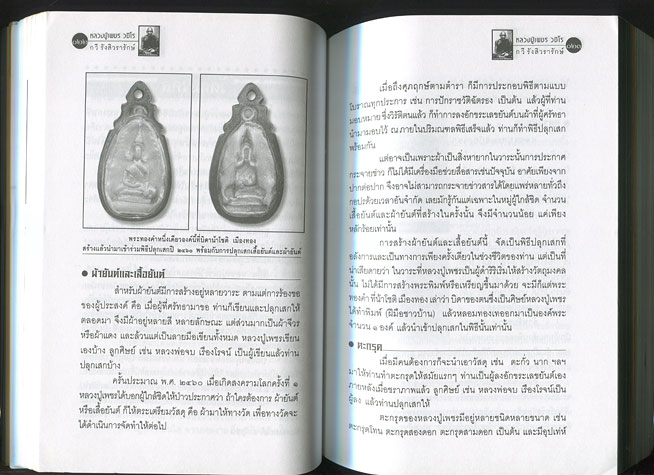 ๑๒๒
หลวงปู่เพชร วชิโร
ทวี รังสิวรารักษ์
พระทองคำหนึ่งเดียวองค์นี้ที่บิดานำโชติ เมืองทอง
สร้างแล้วนำมาเข้าร่วมพิธีปลุกเสกปี ๒๔๖๐ พร้อมกับการปลุกเสกเสื้อยันต์และผ้ายันต์
● ผ้ายันต์และเสื้อยันต์
สำหรับผ้ายันต์มีการสร้างอยู่หลายวาระ ตามแต่การร้องขอ
ของผู้ประสงค์ คือ เมื่อผู้ที่ศรัทธามาขอ ท่านก็เขียนและปลุกเสกให้
ตลอดมา จึงมีผ้าอยู่หลายสี หลายลักษณะ แต่ส่วนมากเป็นผ้าจีวร
หรือผ้าแดง และล้วนแต่เป็นลายมือเขียนทั้งหมด หลวงปู่เพชรเขียน
เองบ้าง ลูกศิษย์ เช่น หลวงพ่อจบ เรืองโรจน์ เป็นผู้เขียนแล้วท่าน
ปลุกเสกบ้าง
ครั้นประมาณ พ.ศ. ๒๔๖๐ เมื่อเกิดสงครามโลกครั้งที่ ๑
หลวงปู่เพชรได้บอกผู้ใกล้ชิดให้ป่าวประกาศว่า ถ้าใครต้องการ ผ้ายันต์
หรือเสื้อยันต์ ก็ให้ตระเตรียมวัสดุ คือ ผ้ามาให้ทางวัด เพื่อทางวัดจะ
ได้ดำเนินการจัดทำให้ต่อไป
หลวงปู่เพชร วชิโร
ทวี รังสิวรารักษ์
๑๒๓
เมื่อถึงศุภฤกษ์ตามตำรา ก็มีการประกอบพิธีตามแบบ
โบราณทุกประการ เช่น การปักราชวัติฉัตรธง เป็นต้น แล้วผู้ที่ท่าน
มอบหมาย ซึ่งวิรัติตนแล้ว ก็ทำการลงอักขระเลขยันต์บนผ้าที่ผู้ศรัทธา
นำมามอบไว้ ณ ภายในปริมณฑลพิธีเสร็จแล้ว ท่านก็ทำพิธีปลุกเสก
พร้อมกัน
แต่อาจเป็นเพราะผ้าเป็นสิ่งหายากในวาระนั้นการประกาศ
กระจายข่าว ก็ไม่ได้มีเครื่องมือช่วยสื่อสารเช่นปัจจุบัน อาศัยเพียงจาก
ปากต่อปาก จึงอาจไม่สามารถกระจายข่าวสารได้โดยแพร่หลายทั่วถึง
กอปรด้วยเวลาอันจำกัด เลยมักรู้กันแต่เฉพาะในหมู่ผู้ใกล้ชิด จำนวน
เสื้อยันต์และผ้ายันต์ที่สร้างในครั้งนั้น จึงมีจำนวนน้อย แค่เพียง
หลักร้อยเท่านั้น
การสร้างผ้ายันต์และเสื้อยันต์นี้ จัดเป็นพิธีปลุกเสกที่
อลังการและเป็นทางการเพียงครั้งเดียวในช่วงชีวิตของท่าน แต่เป็นที่
น่าเสียดายว่า ในวาระที่หลวงปู่เพชรเป็นผู้ดำริริเริ่มให้สร้างวัตถุมงคล
นั้น ไม่ได้มีการสร้างพระพิมพ์หรือเหรียญขึ้นมาด้วย จะมีก็แต่พระ
ทองคำ ที่นำโชติ เมืองทอง เล่าว่า บิดาของตนซึ่งเป็นศิษย์หลวงปู่เพชร
ได้ทำพิมพ์ (ฝีมือชาวบ้าน) แล้วหลอมทองเทออกมาเป็นองค์พระ
จำนวน ๑ องค์ แล้วนำเข้าปลุกเสกในพิธีนั้นเท่านั้น
● ตะกรุด
เมื่อมีคนต้องการก็จะนำเอาวัสดุ เช่น ตะกั่ว นาก ฯลฯ
มาให้ท่านทำตะกรุดให้สมัยแรกๆ ท่านเป็นผู้ลงอักขระเลขยันต์เอง
ภายหลังเมื่อชราภาพแล้ว ลูกศิษย์ เช่น หลวงพ่อจบ เรืองโรจน์เป็น
ผู้ลง แล้วท่านปลุกเสกให้
ตะกรุดของหลวงปู่เพชรมีอยู่หลายชนิดหลายขนาด เช่น
ตะกรุดโทน ตะกรุดสองดอก ตะกรุดสามดอก เป็นต้น และมีอุปเท่ห์